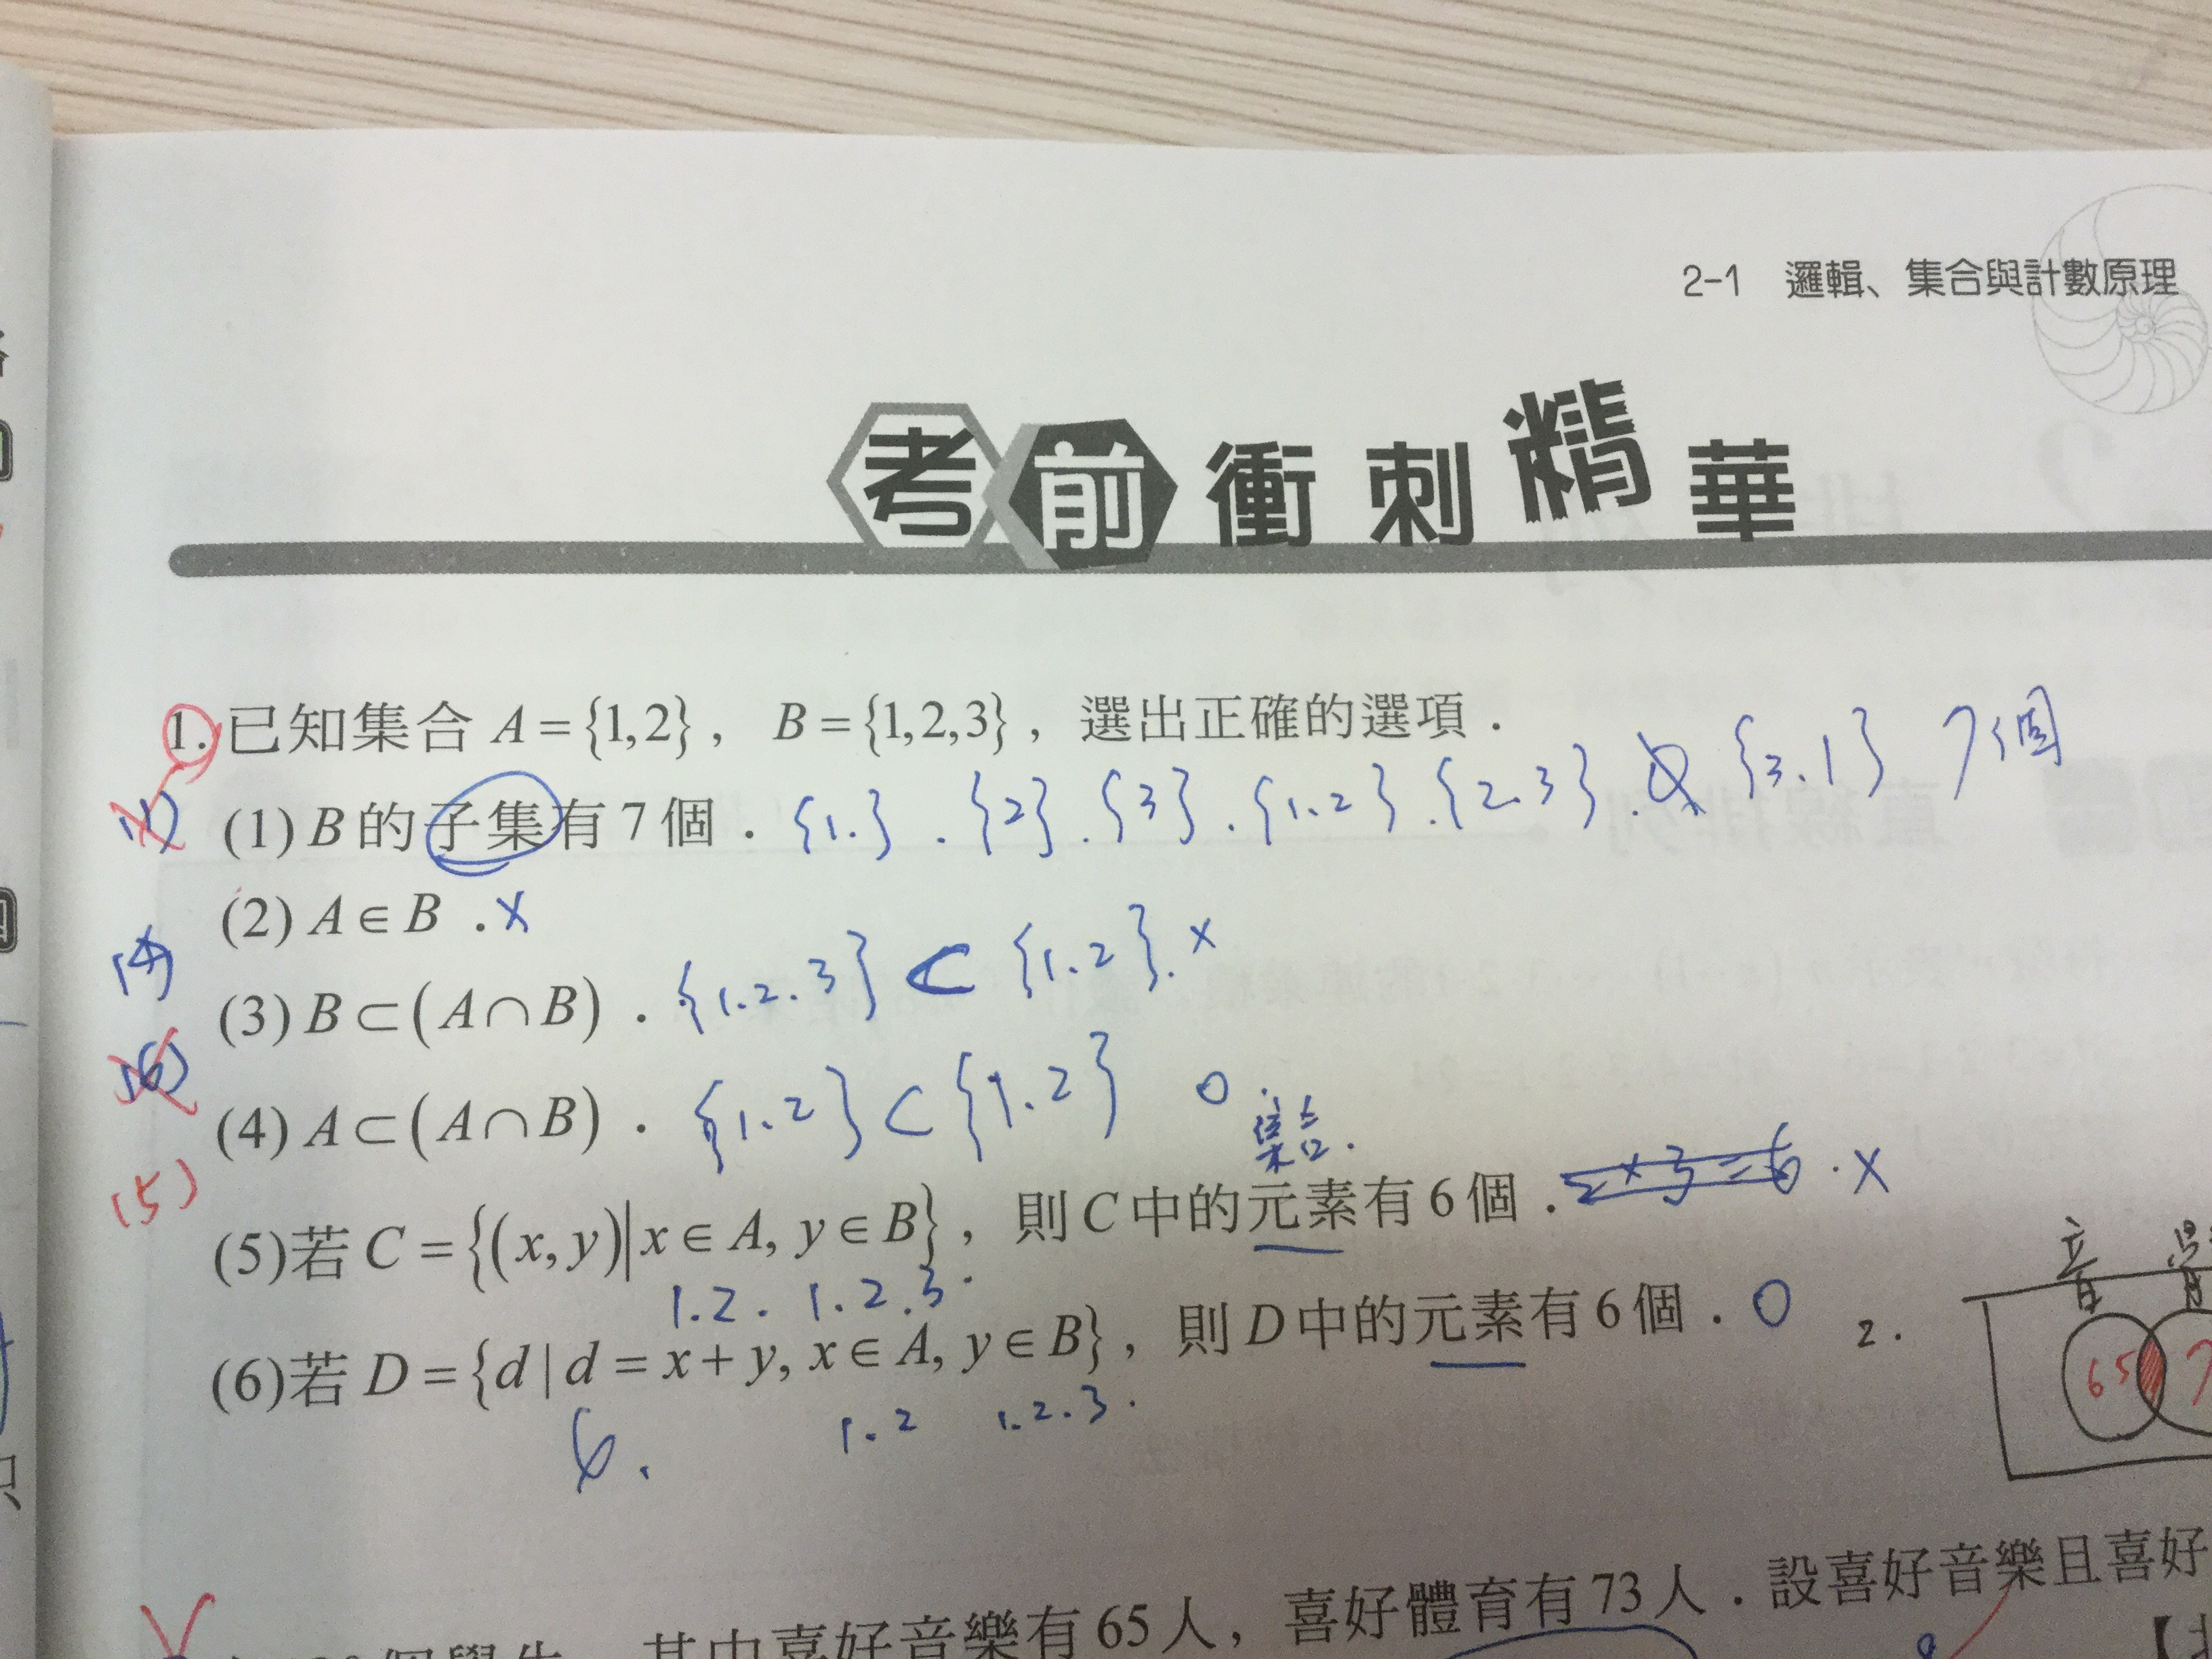 2-1 邏輯、集合與計數原理
考前衝刺精華
1. 已知集合 A={1,2}, B={1,2,3}, 選出正確的選項.
(1) (1) B的子集有7個. {1.}. {2}. {3}. {1.2}. {2.3}. {3.1} 7個
(2) A∈B . x
(4) (3) B⊂(A∩B). {1.2.3} ⊂ {1.2}. x
(6) (4) A⊂(A∩B). {1.2} ⊂ {1.2} o
集合.
(5) (5)若 C={(x,y)|x∈A, y∈B}, 則C中的元素有6個. 2x3=6 . x
1.2. 1.2.3.
(6)若 D={d|d=x+y, x∈A, y∈B}, 則D中的元素有6個. O
6. 1.2 1.2.3.
2.
音
65 7
個學生, 其中喜好音樂有65人, 喜好體育有73人. 設喜好音樂且喜好